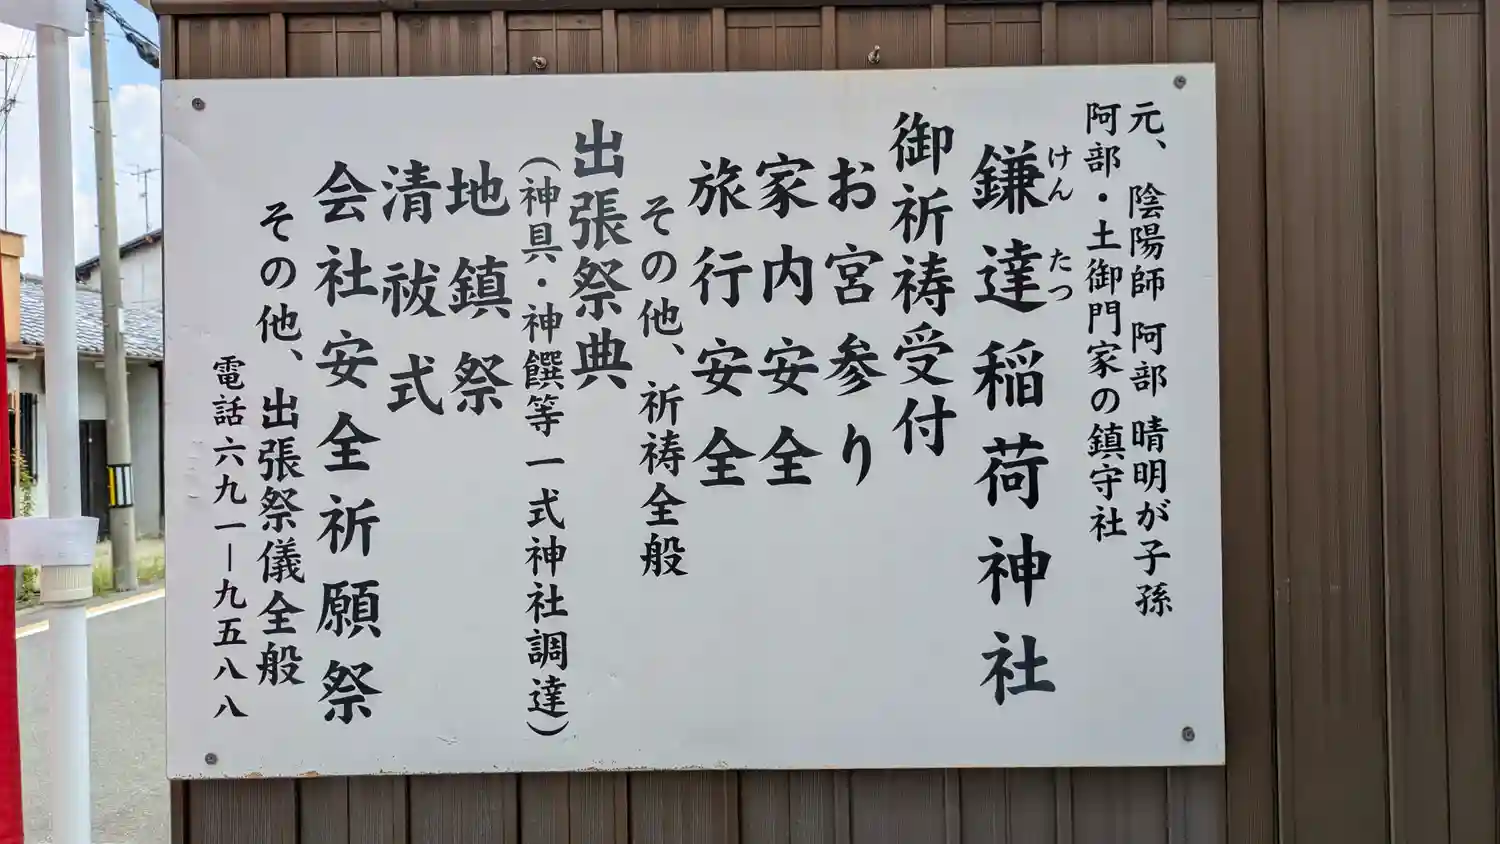 元、陰陽師 阿部 晴明が子孫
阿部・土御門家の鎮守社
けん たつ
鎌達稲荷神社
御祈祷受付
お宮参り
家内安全
旅行安全
その他、祈祷全般
出張祭典
(神具・神饌等一式神社調達)
地鎮祭
清祓式
会社安全祈願祭
その他、出張祭儀全般
電話六九一ー九五八八